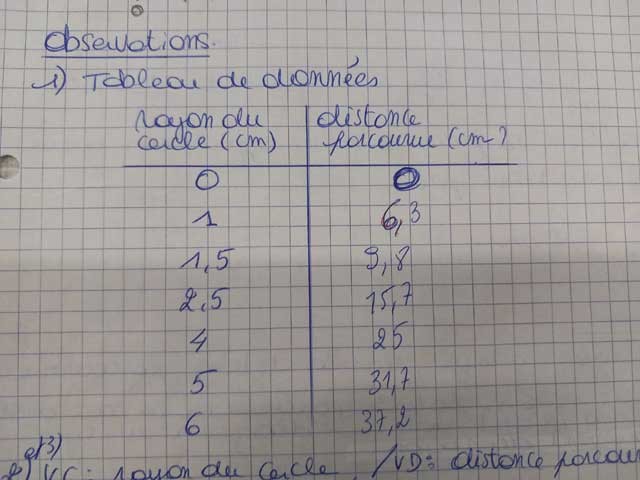 Observations.
1) Tableau de données
rayon du cercle (cm) distance parcourue (cm)
0 0
1 6,3
1,5 9,8
2,5 15,7
4 25
5 31,7
6 37,2
et 3)
2) VC: rayon du cercle /VD: distance parcou